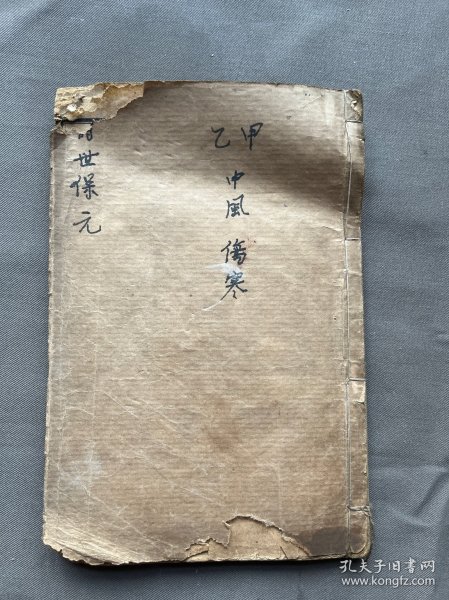 甲乙
中風 傷寒
世保元
孔夫子旧书网
www.kongfz.com